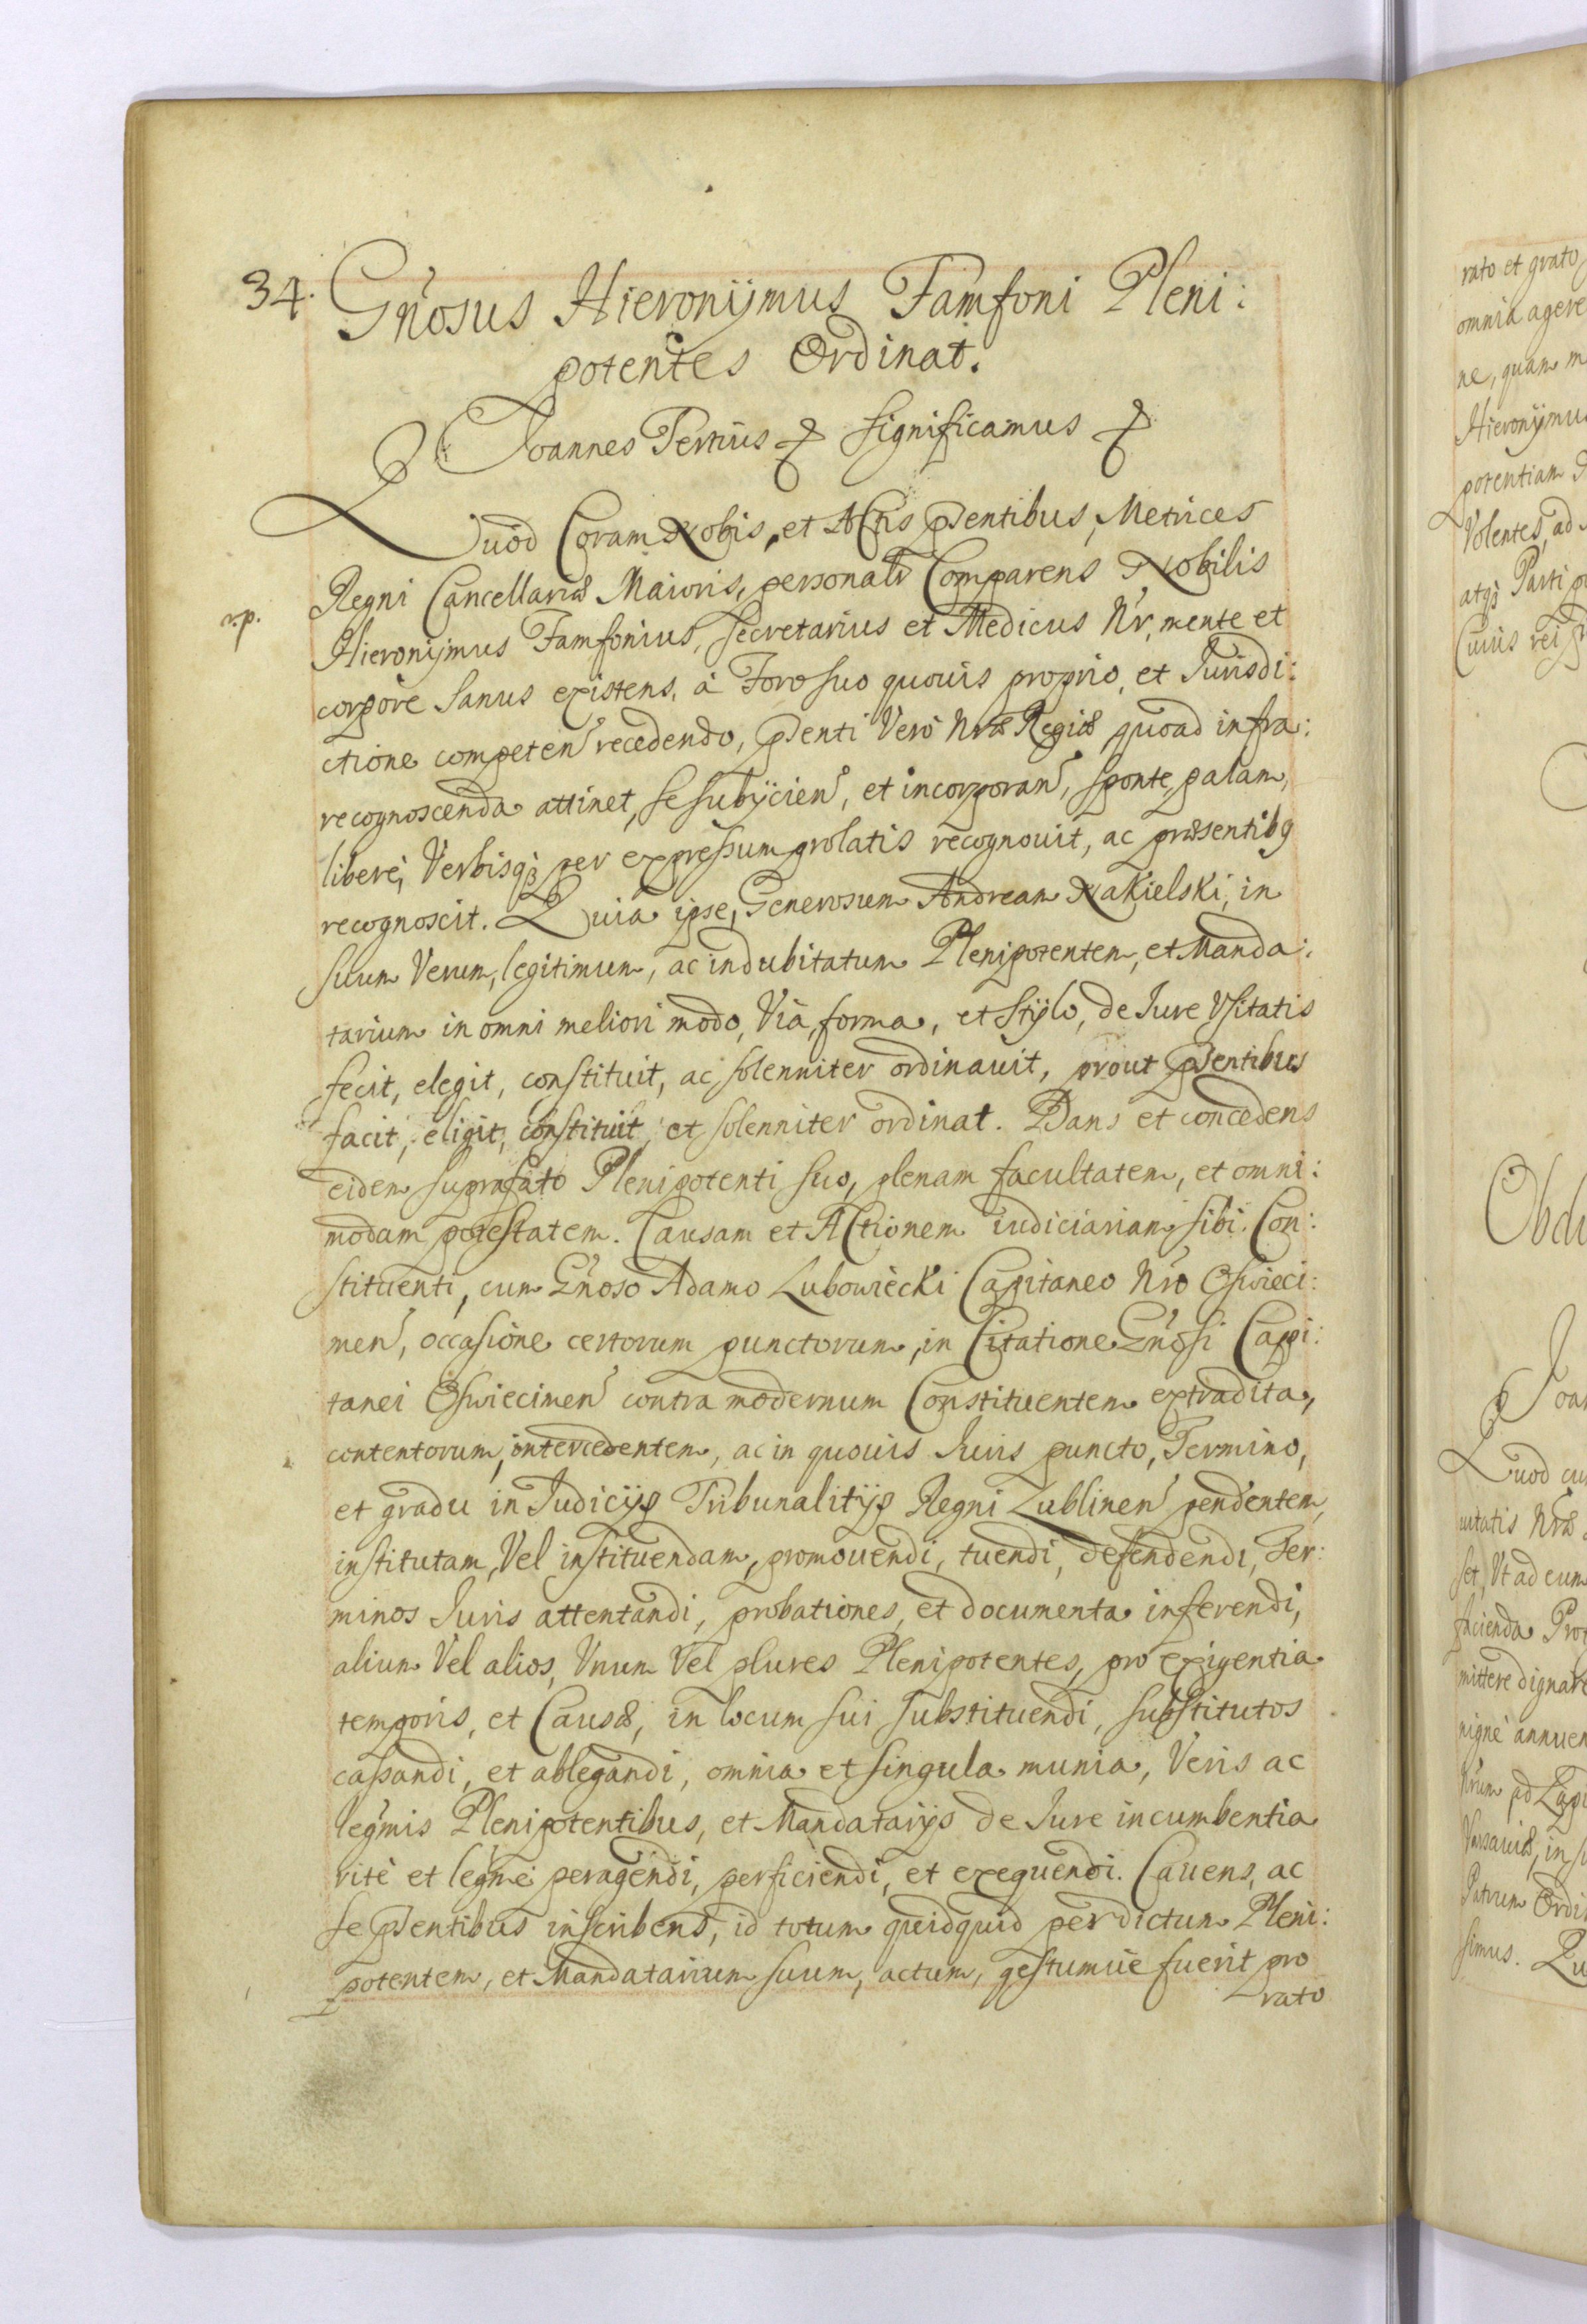 34.
Gñosus Hieronÿmus Famfoni Pleni:
potentes Ordinat.
Joannes Tertius significamus
Quod Coram Nobis, et Actis pñtibus, Metrices
Regni Cancellariæ Maioris, personalr Comparens Nobilis
np.
Hieronÿmus Famfonius, Secretarius et Medicus Nr, mente et
corpore Sanus existens, à Foro suo quouis proprio, et Jurisdi:
ctione competen recedendo, pñti Verò Nræ Regiæ quoad infra:
recognoscenda attinet, se subÿcien, et incorporan, sponte, palam,
liberè, Verbisq per expressum prolatis recognouit, ac præsentibg
recognoscit. Quia ipse, Generosum Andream Nakielski, in
suum Verum, legitimum, ac indubitatum Plenipotentem, et Manda:
tarium in omni meliori modo, Via, forma, et Stÿlo, de Iure Vsitatis
fecit, elegit, constituit, ac solenniter ordinauit, prout pñtibus
facit, eligit, constituit, et solenniter ordinat. Dans et concedens
eidem suprafato Plenipotenti suo, plenam facultatem, et omni:
modam potestatem. Causam et Actionem iudiciariam sibi Con:
stituenti, cum Gñoso Adamo Lubowiecki Capitaneo Nro Oswieci:
men, occasione certorum punctorum, in Citatione Gñosi Capi:
tanei Oswiecimen contra modernum Constituentem extradita,
contentorum, intercedentem, ac in quouis Iuris puncto, Termino,
et gradu in Judicijs Tribunalitijs Regni Lublinen pendentem,
institutam, Vel instituendam, promouendi, tuendi, defendendi, Ter:
minos Iuris attentandi, probationes, et documenta inferendi,
alium Vel alios, Vnum Vel plures Plenipotentes, pro exigentia
temporis, et Causæ, in locum sui substituendi, substitutos
cassandi, et ablegandi, omnia et singula munia, Veris ac
legmis Plenipotentibus, et Mandatarÿs de Iure incumbentia
ritè et legmè peragendi, perficiendi, et exequendi. Cauens, ac
se pñtibus inscribens, id totum quidquid per dictum Pleni:
potentem, et Mandatarium suum, actum, gestumùe fuerit pro
rato